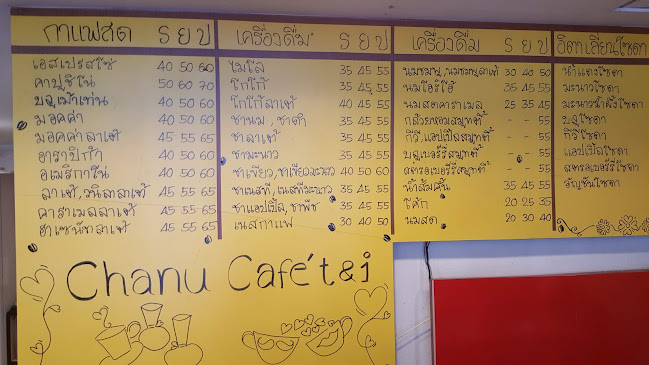 กาแฟสด ร ย ป
เอสเปรสโซ่ 40 50 60
คาปูชิโน่ 50 60 70
บลูเม้าเท่น 40 50 60
มอคค่า 40 50 60
มอคค่าลาเต้ 45 55 65
อาราบิก้า 40 50 60
อเมริกาโน่ 40 50 60
ลาเต้, วนิลลาเต้ 45 55 65
คาราเมลลาเต้ 45 55 65
ฮาเซนัทลาเต้ 45 55 65
เครื่องดื่ม ร ย ป
ไมโล 35 45 55
โกโก้ 35 45 55
โกโก้ลาเต้ 40 45 55
ชานม, ชาดำ 35 45 55
ชาลาเต้ 35 45 55
ชามะนาว 35 45 55
ชาเขียว, ชาเขียวมะนาว 40 50 60
ชาเนสที, เนสทีมะนาว 35 45 55
ชาแอปเปิ้ล, ชาพีช 35 45 55
เนสกาแฟ 30 40 50
เครื่องดื่ม ร ย ป
นมชมพู, นมชมพูลาเต้ 30 40 50
นมโอริโอ้ 35 45 55
นมสดคาราเมล 25 35 45
กล้วยหอมสมูทตี้ - - 55
กีวี, แอปเปิ้ลสมูทตี้ - - 55
บลูเบอร์รี่สมูทตี้ - - 55
สตรอเบอร์รี่สมูทตี้ - - 55
น้ำส้มคั้น 35 45 55
โค้ก 20 25 35
นมสด 20 30 40
อิตาเลี่ยนโซดา
น้ำแดงโซดา
มะนาวโซดา
มะนาวน้ำผึ้งโซดา
บลูโซดา
กีวีโซดา
แอปเปิ้ลโซดา
สตรอเบอร์รี่โซดา
อัญชันโซดา
Chanu Cafe't&i